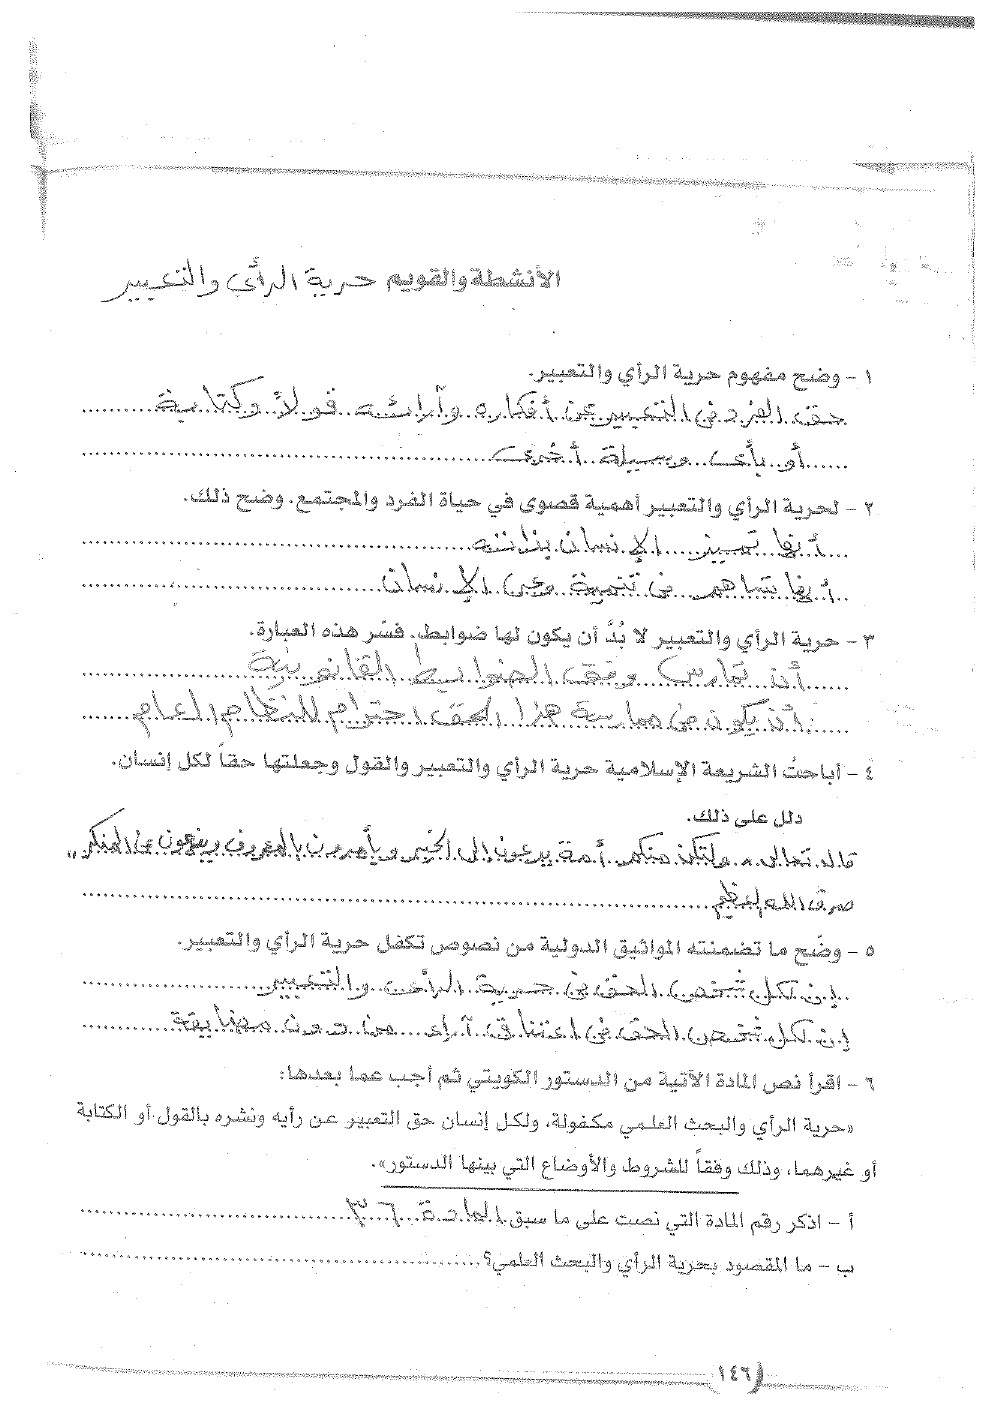 الأنشطة والقويم حرية الرأي والتعبير
١ - وضح مفهوم حرية الرأي والتعبير.
حق الفرد في التعبير عن أفكاره وآرائه قولاً وكتابية
أو بأي وسيلة أخرى
٢ - لحرية الرأي والتعبير أهمية قصوى في حياة الفرد والمجتمع. وضح ذلك.
أنها تميز الإنسان بذاته
أنها تساهم في تنمية وعي الإنسان
٣ - حرية الرأي والتعبير لا بُدَّ أن يكون لها ضوابط. فسّر هذه العبارة.
أن تمارس وفق الضوابط القانونية
أن يكون في ممارسة هذا الحق احترام للنظام العام
٤ - أباحتُ الشريعة الإسلامية حرية الرأي والتعبير والقول وجعلتها حقاً لكل إنسان.
دلل على ذلك.
قال تعالى " ولتكن منكم أمة يدعون إلى الخير ويأمرون بالمعروف وينهون عن المنكر "
صدق الله العظيم
٥ - وضّح ما تضمنته المواثيق الدولية من نصوص تكفل حرية الرأي والتعبير.
إن لكل شخص الحق في حرية الرأي والتعبير
إن لكل شخص الحق في اعتناق آراء من دون مضايقة
٦ - اقرأ نص المادة الآتية من الدستور الكويتي ثم أجب عما بعدها:
«حرية الرأي والبحث العلمي مكفولة، ولكل إنسان حق التعبير عن رأيه ونشره بالقول أو الكتابة
أو غيرهما، وذلك وفقاً للشروط والأوضاع التي بينها الدستور».
أ - اذكر رقم المادة التي نصت على ما سبق المادة ٣٦
ب - ما المقصود بحرية الرأي والبحث العلمي؟
١٤٦